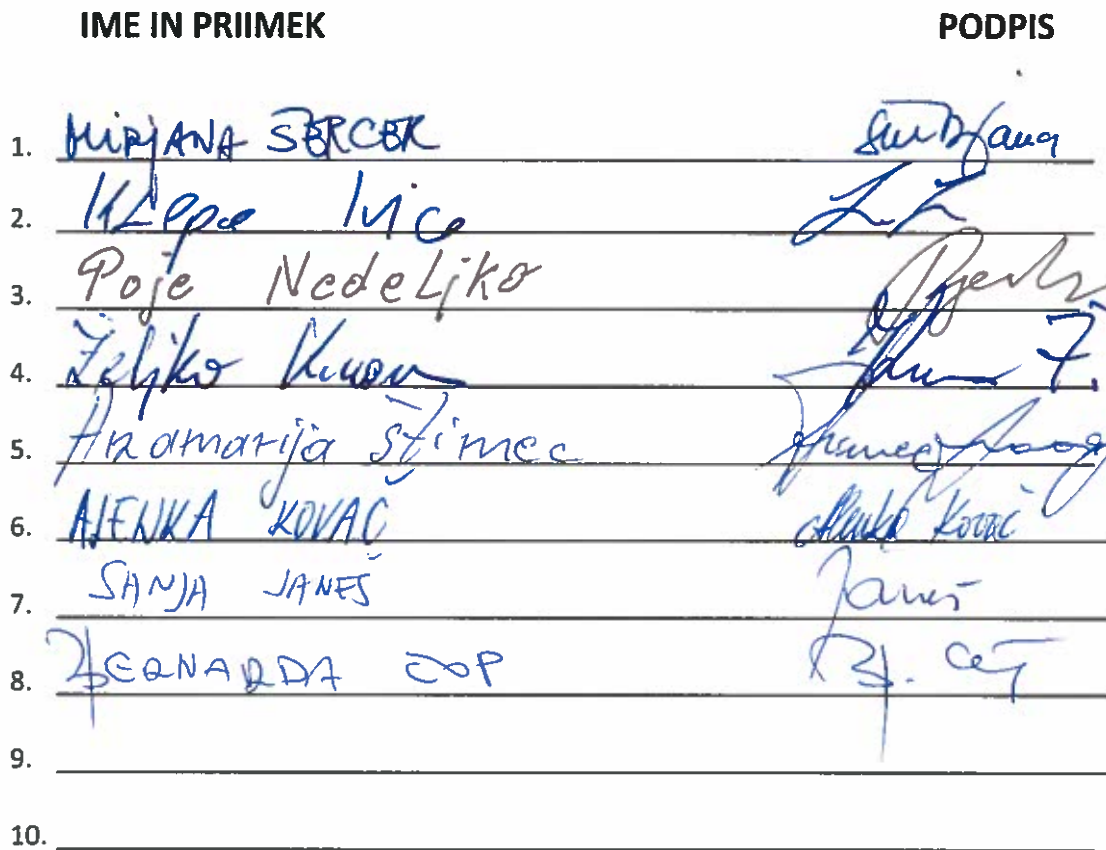 IME IN PRIIMEK PODPIS
1. MIRJANA ŠERCER
2. Klepac Ivica
3. Poje Nedeljko
4. Željko
5. Anamarija Štimec
6. ALENKA KOVAČ Alenka Kovač
7. SANJA JANEŠ Janeš
8. BERNARDA ČOP B. Čop
9.
10.